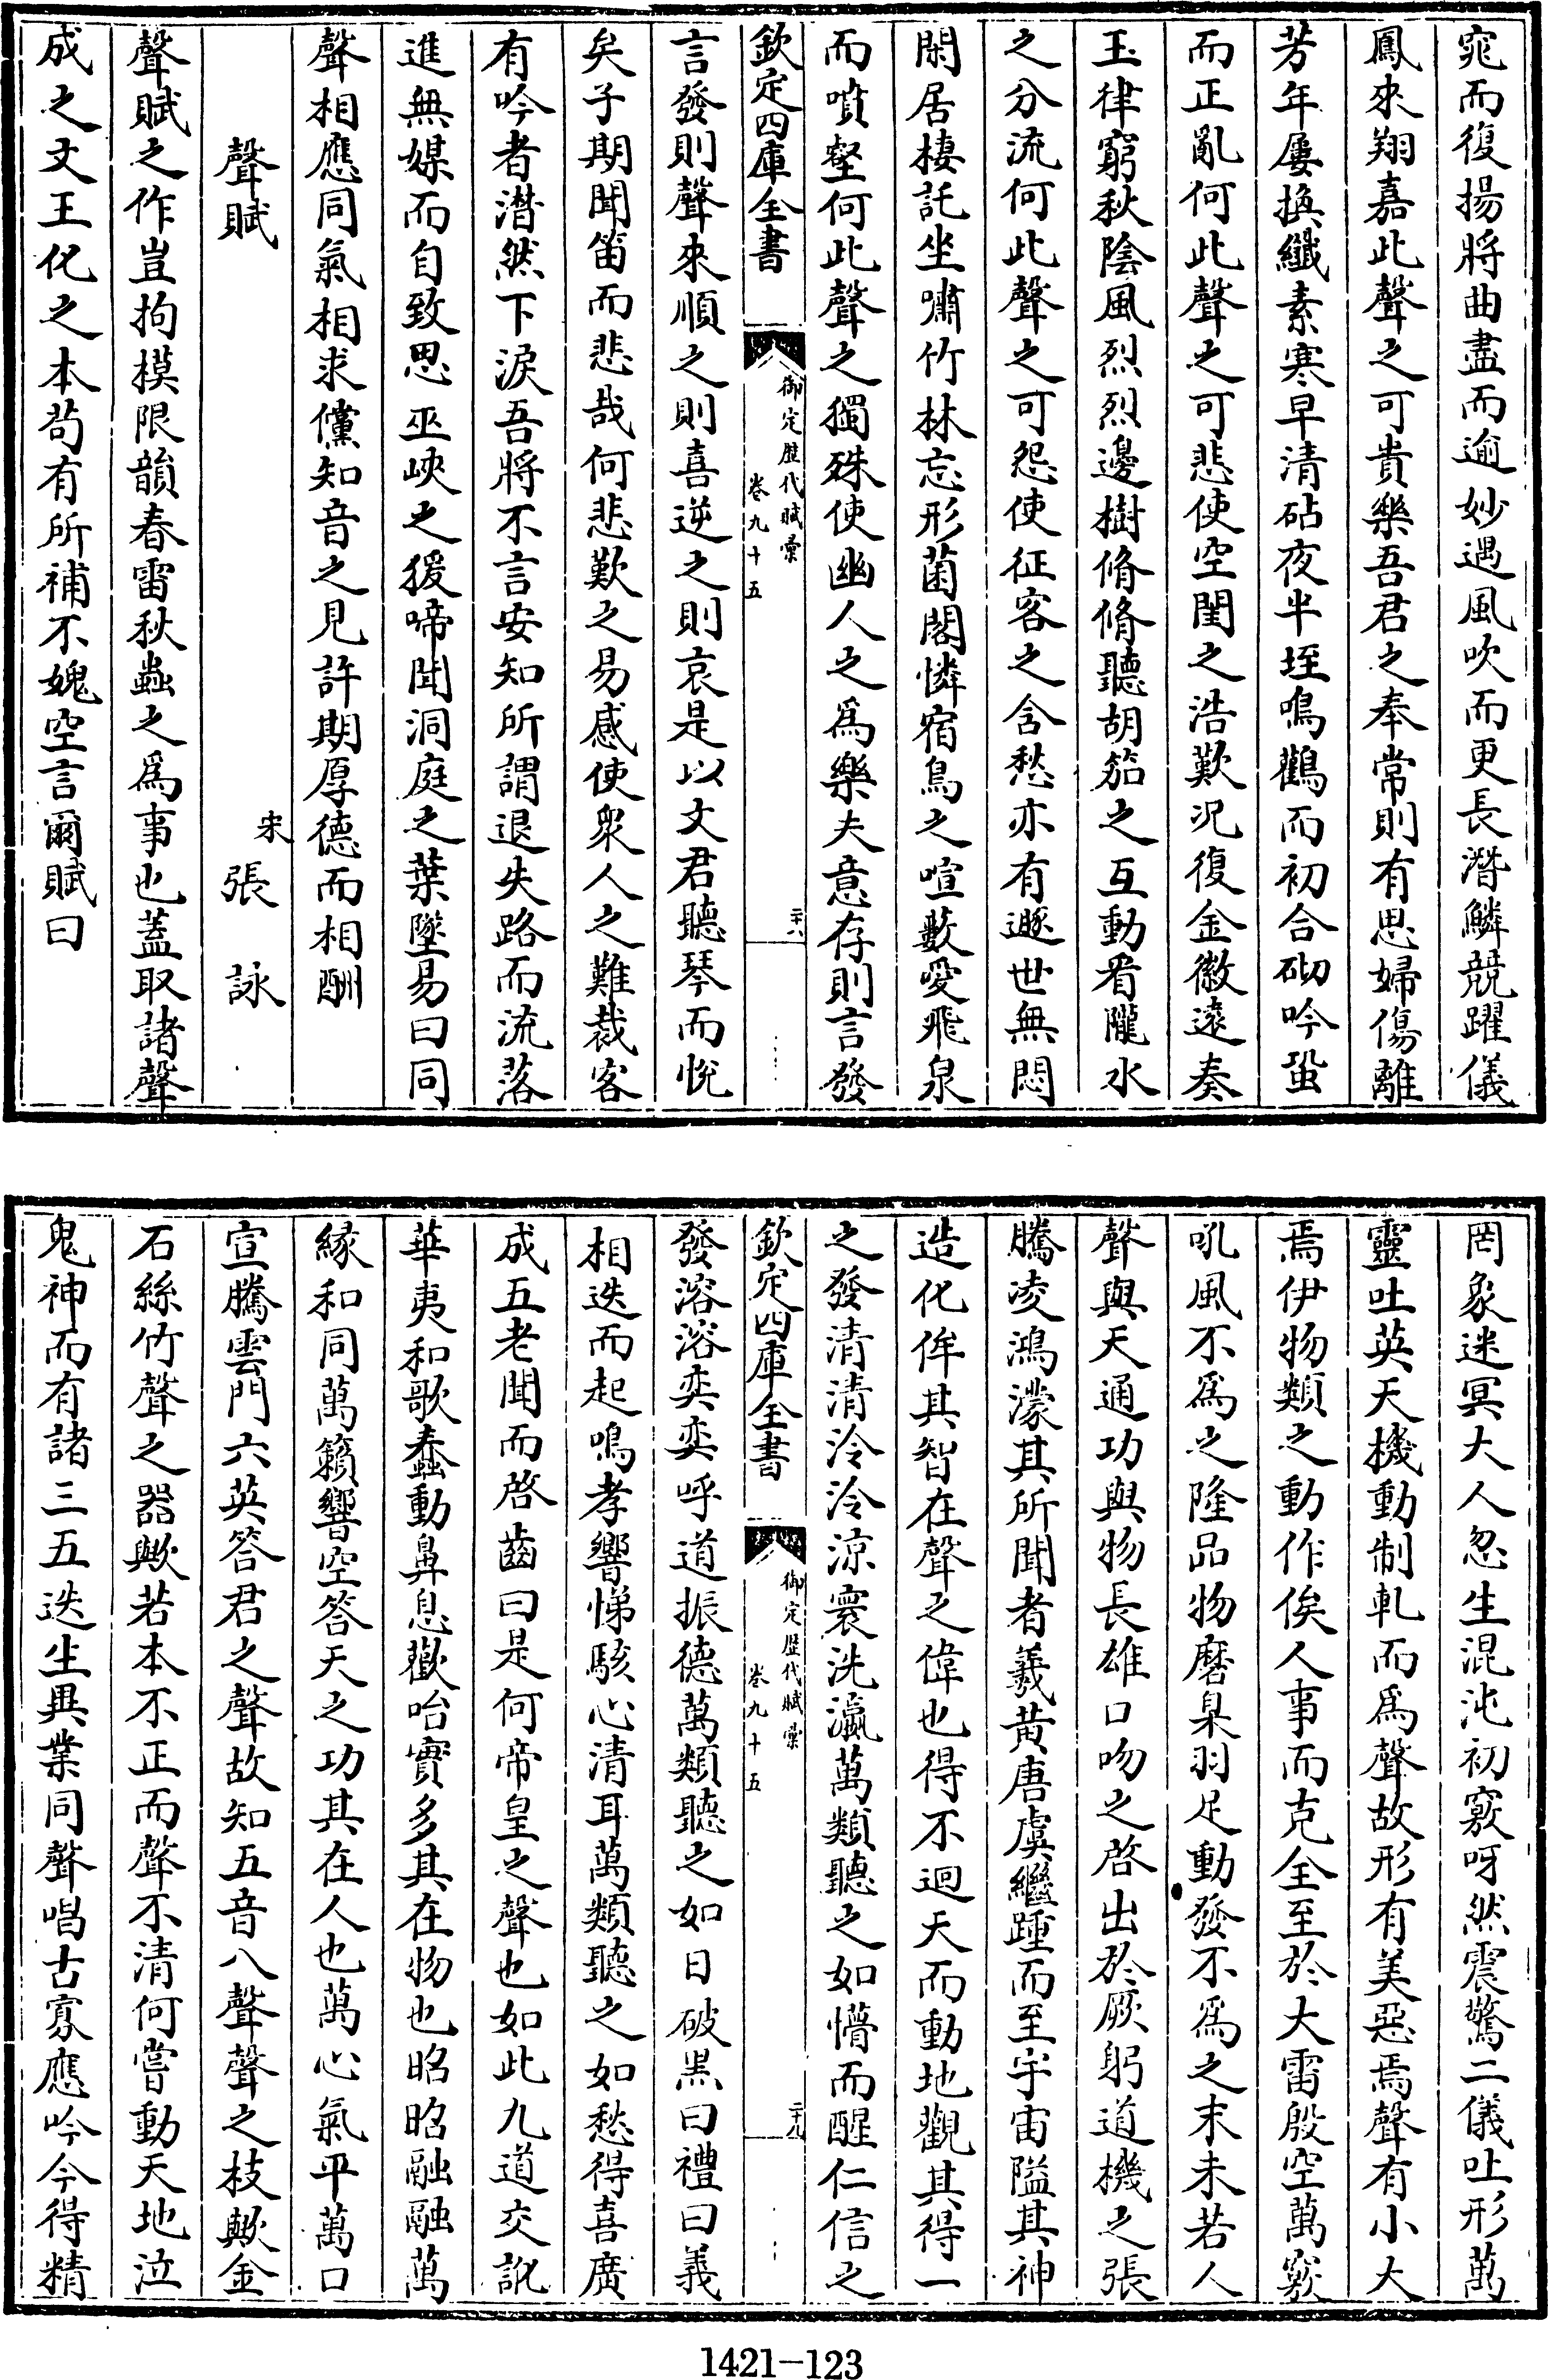 窕而復揚將曲盡而逾妙遇風吹而更長潛鱗競躍儀
鳳來翔嘉此聲之可貴樂吾君之奉常則有思婦傷離
芳年屢換纖素寒早清砧夜半垤鳴鸛而初合砌吟蛩
而正亂何此聲之可悲使空閨之浩歎況復金徽遠奏
玉律窮秋陰風烈烈邊樹脩脩聽胡笳之互動看隴水
之分流何此聲之可怨使征客之含愁亦有遯世無悶
閑居棲託坐嘯竹林忘形菌閣憐宿鳥之喧藪愛飛泉
而噴壑何此聲之獨殊使幽人之為樂夫意存則言發
欽定四庫全書 御定歷代賦彙 卷九十五 二十八
言發則聲來順之則喜逆之則哀是以文君聽琴而悅
矣子期聞笛而悲哉何悲歎之易感使衆人之難裁客
有吟者潛然下淚吾將不言安知所謂退失路而流落
進無媒而自致思巫峽之猨啼聞洞庭之葉墜易曰同
聲相應同氣相求儻知音之見許期厚德而相酬
聲賦 宋張詠
聲賦之作豈拘模限韻春雷秋蟲之為事也蓋取諸聲
成之文王化之本苟有所補不媿空言爾賦曰
罔象迷冥大人忽生混沌初竅呀然震驚二儀吐形萬
靈吐英天機動制軋而為聲故形有美惡焉聲有小大
焉伊物類之動作俟人事而克全至於大雷殷空萬竅
吼風不為之隆品物磨臬羽足動發不為之末未若人
聲與天通功與物長雄口吻之啓出於厥躬道機之張
騰凌鴻濛其所聞者羲黃唐虞繼踵而至宇宙隘其神
造化侔其智在聲之偉也得不迴天而動地觀其得一
之發清清泠泠涼寰洗瀛萬類聽之如懵而醒仁信之
欽定四庫全書 御定歷代賦彙 卷九十五 二十九
發溶溶奕奕呼道振德萬類聽之如日破黑曰禮曰義
相迭而起鳴孝響悌駭心清耳萬類聽之如愁得喜廣
成五老聞而啓齒曰是何帝皇之聲也如此九道交訛
華夷和歌蠢動鼻息歡咍實多其在物也昭昭融融萬
緣和同萬籟響空答天之功其在人也萬心氣平萬口
宣騰雲門六英答君之聲故知五音八聲聲之枝歟金
石絲竹聲之器歟若本不正而聲不清何嘗動天地泣
鬼神而有諸三五迭生異業同聲唱古寡應吟今得精
1421-123